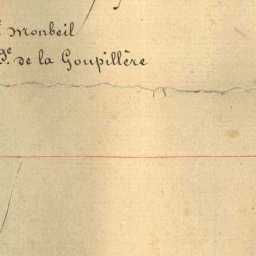 Monbeil
de la Goupillère